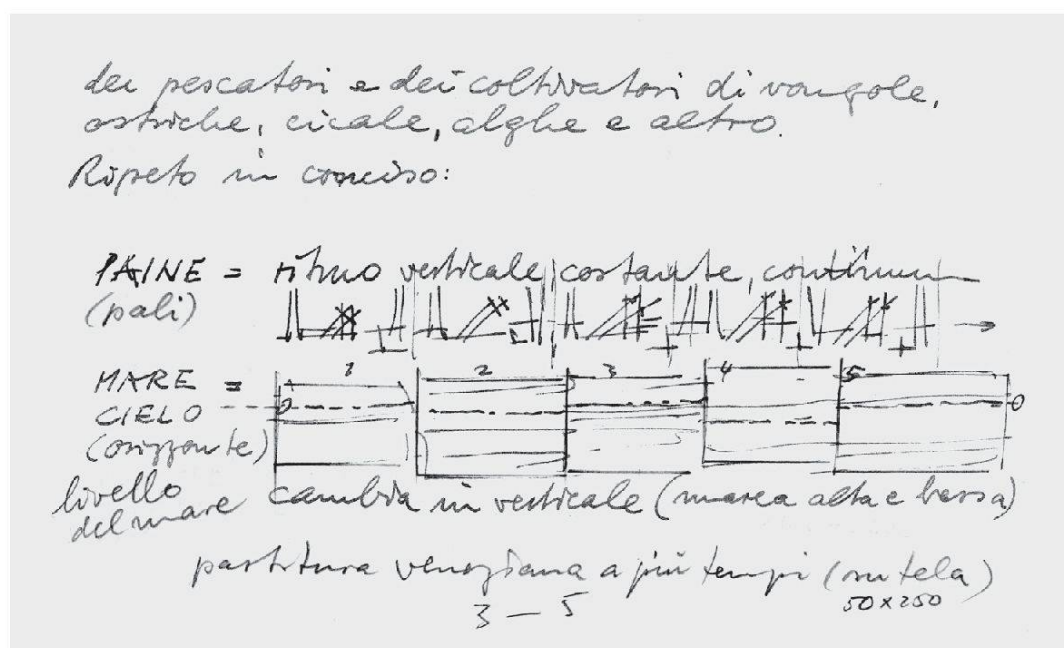 dei pescatori e dei coltivatori di vongole,
ostriche, cicale, alghe e altro.
Ripeto in conciso:
PAINE = ritmo verticale, costante, continuo
(pali)
1 2 3 4 5
MARE =
CIELO
(orizzonte)
0 0
livello del mare cambia in verticale (marea alta e bassa)
partitura veneziana a più tempi (su tela)
3 — 5 50x250